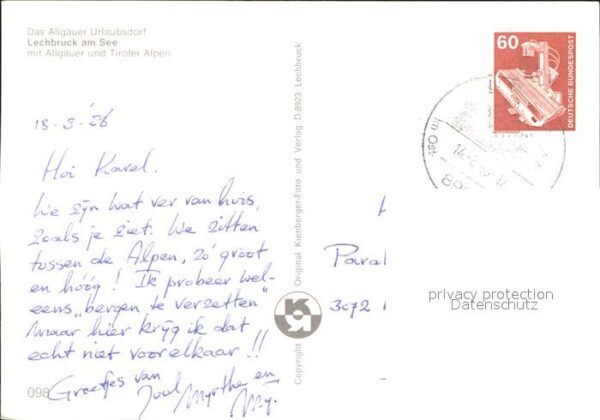 Das Allgäuer Urlaubsdorf
Lechbruck am See
mit Allgäuer und Tiroler Alpen
Hoi Karel.
We zijn wat ver van huis,
zoals je ziet. We zitten
tussen de Alpen, zó groot
en hóóg! Ik probeer wel-
eens „bergen te verzetten”
maar hier krijg ik dat
echt niet voor elkaar!!
Groetjes van
Joal, Myrthe en
My.
098
Copyright Original Kienberger-Foto und Verlag D-8923 Lechbruck
60
DEUTSCHE BUNDESPOST
Paral
3072
privacy protection
Datenschutz